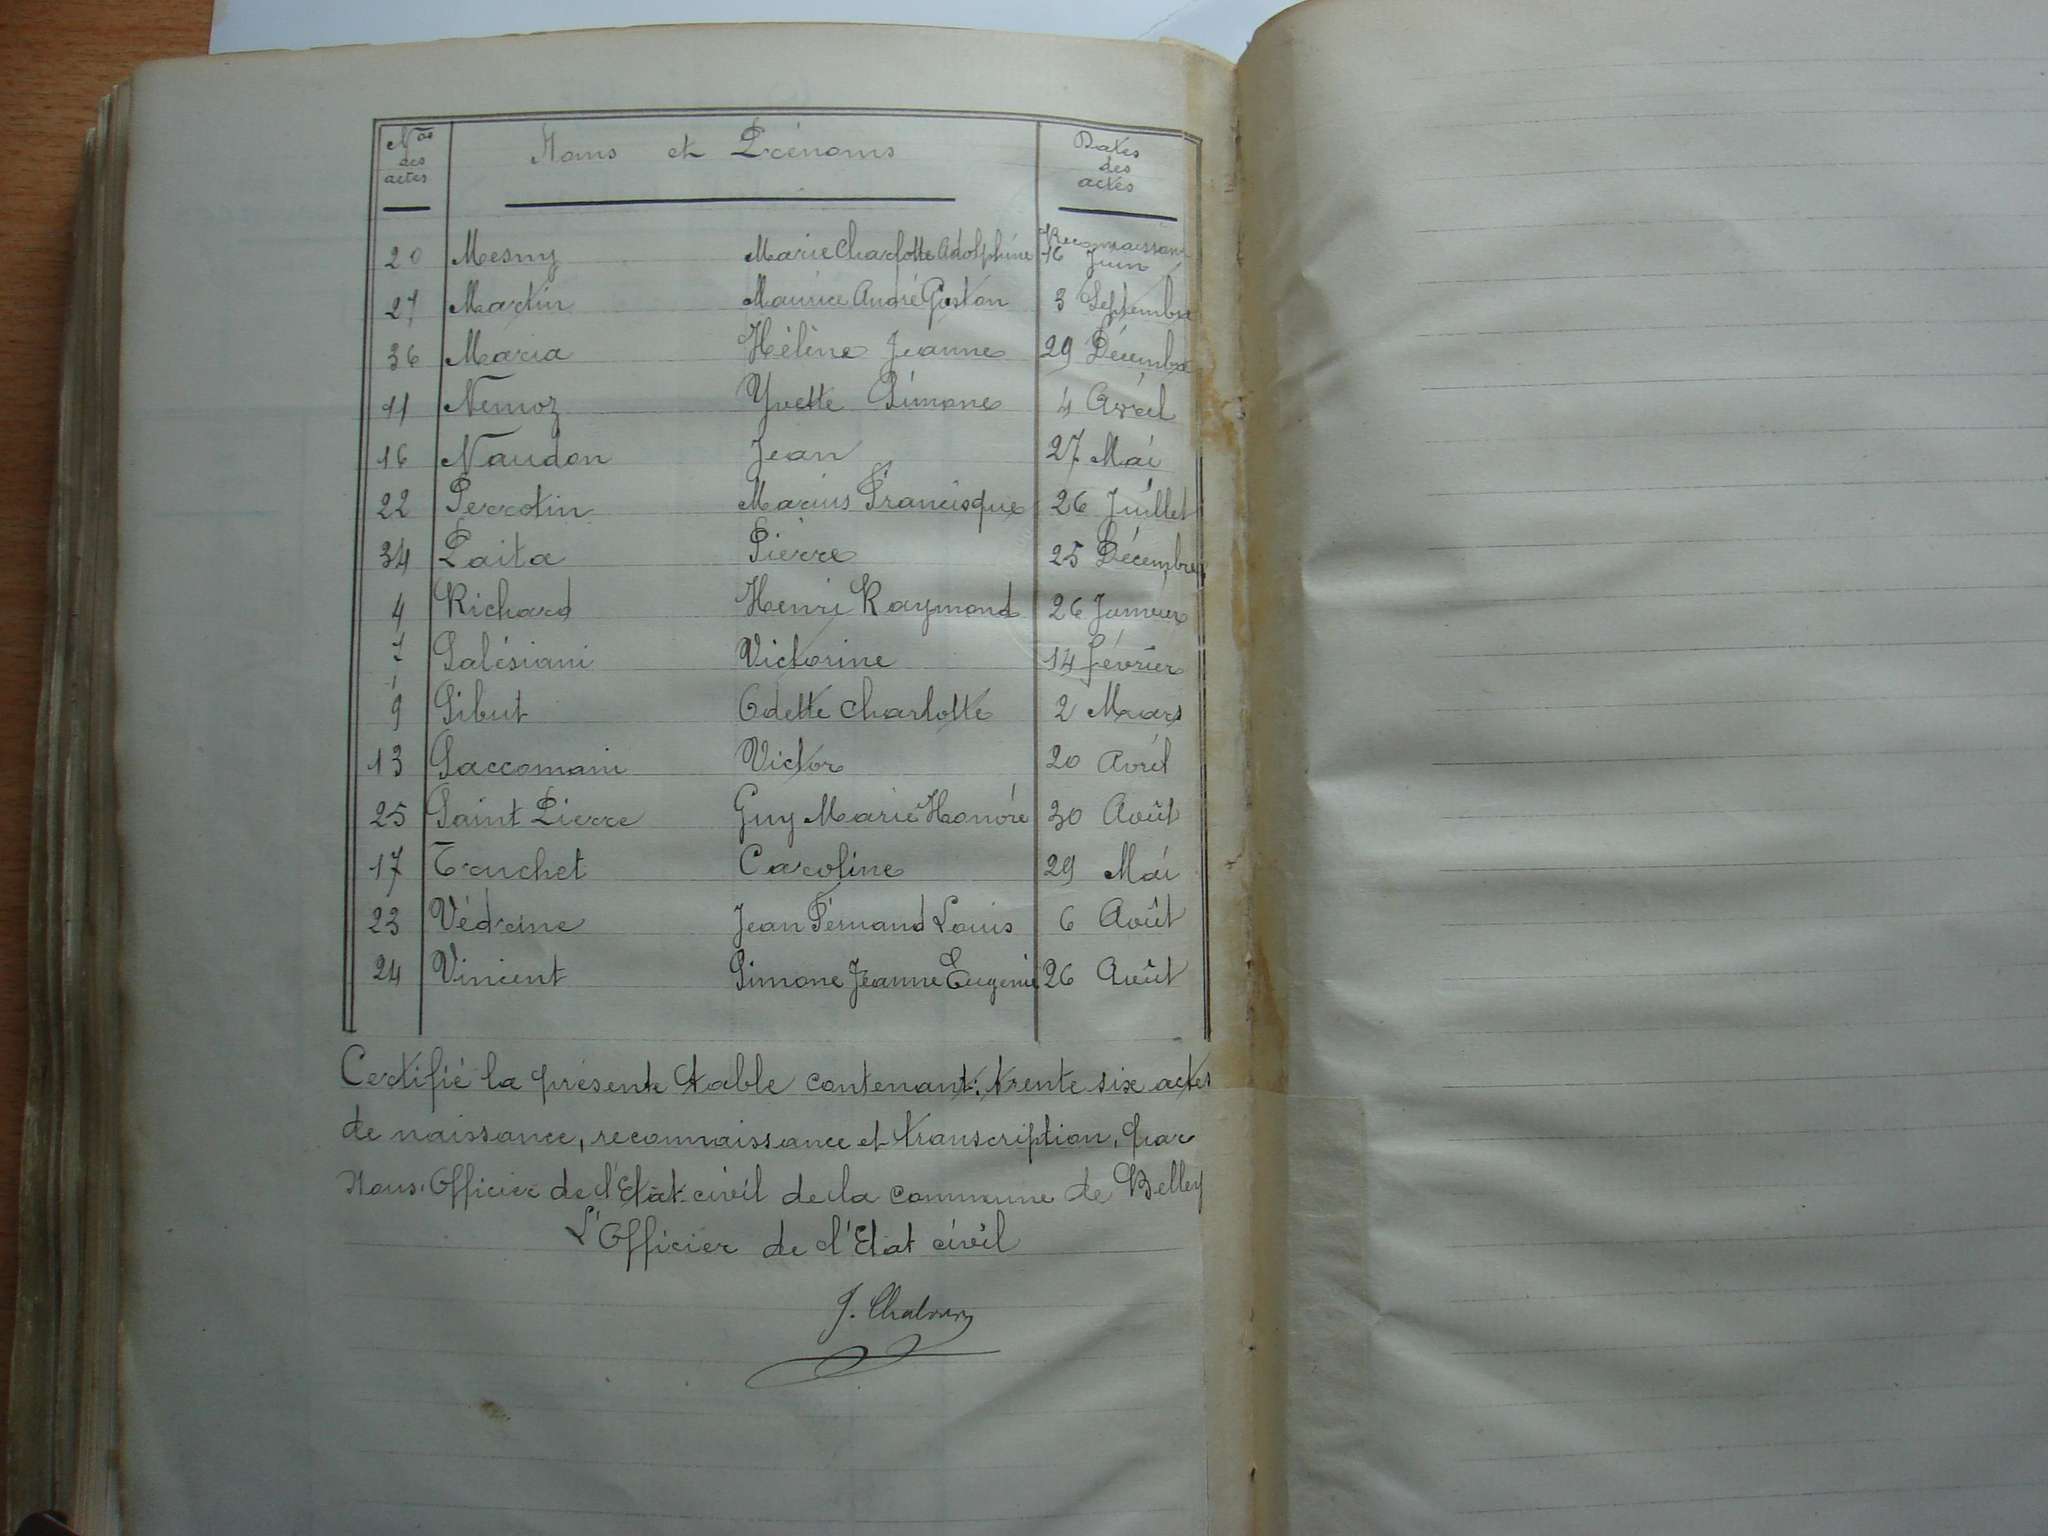 Nos des actes Noms et Prénoms Dates des actes
20 Mesny Marie Charlotte Adolphine Reconnaissance 16 Juin
27 Martin Maurice André Gaston 3 Septembre
36 Maria Hélène Jeanne 29 Décembre
11 Nemoz Yvette Simone 4 Avril
16 Naudon Jean 27 Mai
22 Perrotin Marius Francisque 26 Juillet
34 Paita Pierre 25 Décembre
4 Richard Henri Raymond 26 Janvier
7 Salésiani Victorine 14 février
9 Sibut Odette Charlotte 2 Mars
13 Saccomani Victor 20 Avril
25 Saint Pierre Guy Marie Honoré 30 Août
17 Truchet Caroline 29 Mai
23 Védrine Jean Fernand Louis 6 Août
24 Vincent Simone Jeanne Eugénie 26 Août
Certifié la présente table contenant trente six actes
de naissance, reconnaissance et transcription, par
Nous, Officier de l'Etat civil de la commune de Belley
L'Officier de l'Etat civil